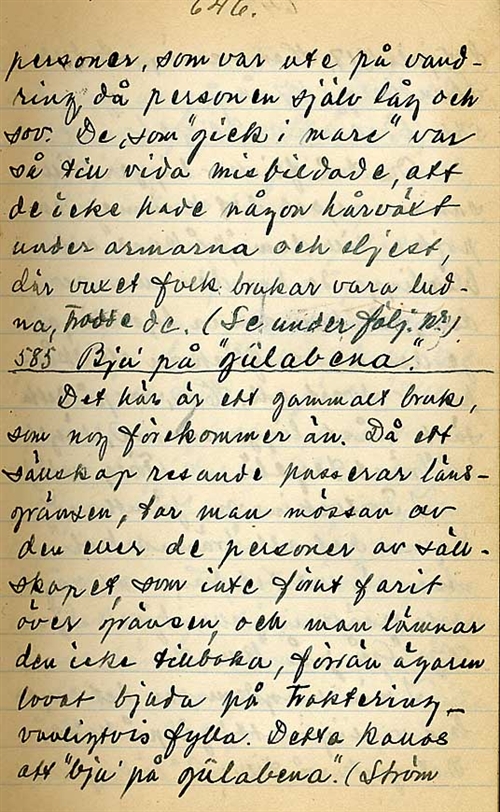 646.
personer, som var ute på vand-
ring, då personen själv låg och
sov. De, som "gick i mare" var
så till vida misbildade, att
de icke hade någon hårväxt
under armarna och eljest,
där vuxet folk brukar vara lud-
na, trodde de. (Se under följ. nr.)
585 Bju' på "gülabena".
Det här är ett gammalt bruk,
som nog förekommer än. Då ett
sällskap resande passerar läns-
gränsen, tar man mössan av
den eller de personer av säll-
skapet, som inte förut farit
över gränsen, och man lämnar
den icke tillbaka, förrän ägaren
lovat bjuda på traktering,
vanligtvis fylla. Detta kallas
att "bju' på gülabena". (Ström